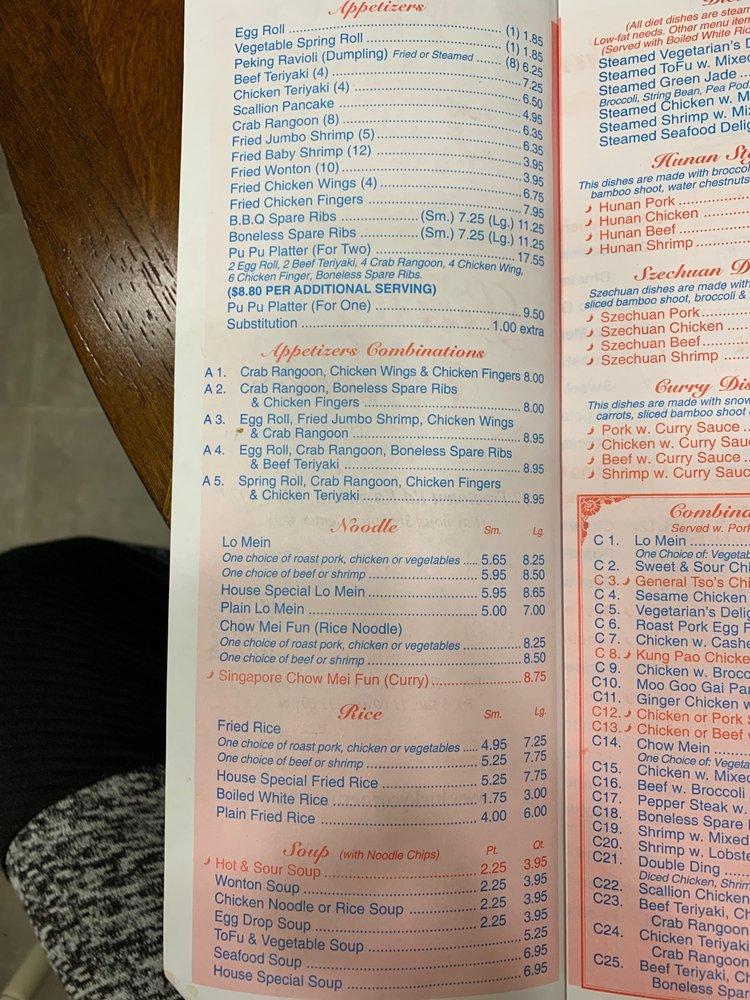 Appetizers
Egg Roll ........ (1) 1.85
Vegetable Spring Roll ........ (1) 1.85
Peking Ravioli (Dumpling) Fried or Steamed ...... (8) 6.25
Beef Teriyaki (4) ........ 7.25
Chicken Teriyaki (4) ........ 6.50
Scallion Pancake ........ 4.95
Crab Rangoon (8) ........ 6.35
Fried Jumbo Shrimp (5) ........ 6.35
Fried Baby Shrimp (12) ........ 3.95
Fried Wonton (10) ........ 3.95
Fried Chicken Wings (4) ........ 6.75
Fried Chicken Fingers ........ 7.95
B.B.Q Spare Ribs ........ (Sm.) 7.25 (Lg.) 11.25
Boneless Spare Ribs ........ (Sm.) 7.25 (Lg.) 11.25
Pu Pu Platter (For Two) ........ 17.55
2 Egg Roll, 2 Beef Teriyaki, 4 Crab Rangoon, 4 Chicken Wing,
6 Chicken Finger, Boneless Spare Ribs.
($8.80 PER ADDITIONAL SERVING)
Pu Pu Platter (For One) ........ 9.50
Substitution ........ 1.00 extra
Appetizers Combinations
A 1. Crab Rangoon, Chicken Wings & Chicken Fingers 8.00
A 2. Crab Rangoon, Boneless Spare Ribs
& Chicken Fingers ........ 8.00
A 3. Egg Roll, Fried Jumbo Shrimp, Chicken Wings
& Crab Rangoon ........ 8.95
A 4. Egg Roll, Crab Rangoon, Boneless Spare Ribs
& Beef Teriyaki ........ 8.95
A 5. Spring Roll, Crab Rangoon, Chicken Fingers
& Chicken Teriyaki ........ 8.95
Noodle Sm. Lg.
Lo Mein
One choice of roast pork, chicken or vegetables ..... 5.65 8.25
One choice of beef or shrimp ........ 5.95 8.50
House Special Lo Mein ........ 5.95 8.65
Plain Lo Mein ........ 5.00 7.00
Chow Mei Fun (Rice Noodle)
One choice of roast pork, chicken or vegetables ........ 8.25
One choice of beef or shrimp ........ 8.50
Singapore Chow Mei Fun (Curry) ........ 8.75
Rice Sm. Lg.
Fried Rice
One choice of roast pork, chicken or vegetables ..... 4.95 7.25
One choice of beef or shrimp ........ 5.25 7.75
House Special Fried Rice ........ 5.25 7.75
Boiled White Rice ........ 1.75 3.00
Plain Fried Rice ........ 4.00 6.00
Soup (with Noodle Chips) Pt. Qt.
Hot & Sour Soup ........ 2.25 3.95
Wonton Soup ........ 2.25 3.95
Chicken Noodle or Rice Soup ........ 2.25 3.95
Egg Drop Soup ........ 2.25 3.95
ToFu & Vegetable Soup ........ 5.25
Seafood Soup ........ 6.95
House Special Soup ........ 6.95
(All diet dishes are
Low-fat needs. Other menu
(Served with Boiled White
Steamed Vegetarian's
Steamed ToFu w.
Steamed Green Jade ...
Broccoli, String Bean, Pea
Steamed Chicken w.
Steamed Shrimp w.
Steamed Seafood
Hunan
This dishes are made with
bamboo shoot, water chestnuts
Hunan Pork ........
Hunan Chicken ........
Hunan Beef ........
Hunan Shrimp ........
Szechuan
Szechuan dishes are made
sliced bamboo shoot, broccoli &
Szechuan Pork ........
Szechuan Chicken ........
Szechuan Beef ........
Szechuan Shrimp ........
Curry
This dishes are made with
carrots, sliced bamboo shoot
Pork w. Curry Sauce ..
Chicken w. Curry
Beef w. Curry Sauce ...
Shrimp w. Curry
Served w.
C 1. Lo Mein ........
One Choice of:
C 2. Sweet & Sour
C 3. General Tso's
C 4. Sesame Chicken
C 5. Vegetarian's
C 6. Roast Pork Egg
C 7. Chicken w.
C 8. Kung Pao
C 9. Chicken w.
C10. Moo Goo Gai
C11. Ginger Chicken
C12. Chicken or Pork
C13. Chicken or Beef
C14. Chow Mein ........
One Choice of:
C15. Chicken w.
C16. Beef w. Broccoli
C17. Pepper Steak w.
C18. Boneless Spare
C19. Shrimp w.
C20. Shrimp w.
C21. Double Ding ....
Diced Chicken,
C22. Scallion
C23. Beef Teriyaki,
Crab Rangoon
C24. Chicken Teriyaki
Crab Rangoon
C25. Beef Teriyaki,
Boneless